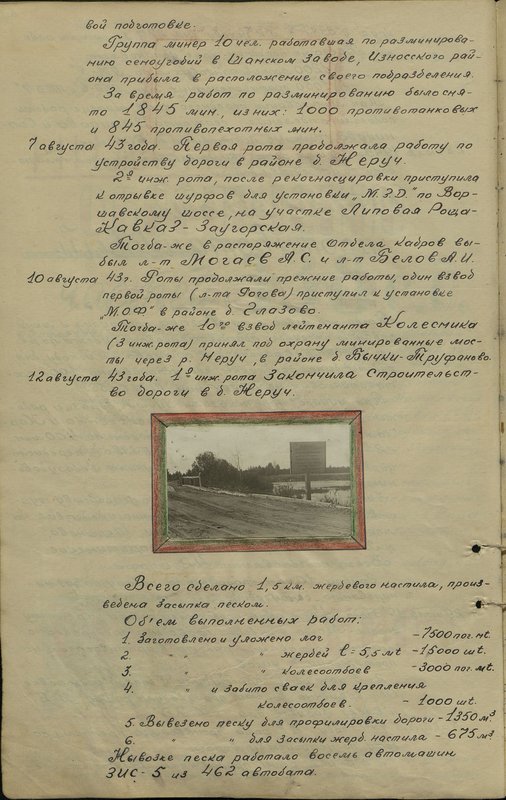 вой подготовке.
Группа минер 10 чел. работавшая по разминирова-
нию сеноугодий в Шанском Заводе, Износского рай-
она прибыла в расположение своего подразделения.
За время работ по разминированию было сня-
то 1845 мин, из них: 1000 противотанковых
и 845 противопехотных мин.
7 августа 43 года. Первая рота продолжала работу по
устройству дороги в районе д. Неруч.
2я инж. рота, после рекогнасцировки приступила
к отрывке шурфов для установки „М.З.Д" по Вор-
шавскому шоссе, на участке Липовая Роща-
Кавказ-Заугорская.
Тогда-же в распоряжение Отдела кадров вы-
был л-т Могаев А.С. и л-т Белов А.И.
10 августа 43 г. Роты продолжали прежние работы, один взвод
первой роты (л-та Рогова) приступил к установке
„МОФ" в районе д. Глазово.
Тогда-же взвод лейтенанта Колесника
(3 инж. рота) принял под охрану минированные мос-
ты через р. Неруч, в районе д. Бычки-Труфаново.
12 августа 43 года. 1я инж. рота закончила строительст-
во дороги в д. Неруч.
Всего сделано 1,5 км. жердевого настила, произ-
ведена засыпка песком.
Об'ем выполненных работ:
1. Заготовлено и уложено лаг - 7500 пог. мt.
2. " " жердей l = 5,5 мt - 15000 шt.
3. " " колесоотбоев - 3000 пог. мt.
4. " и забито сваек для крепления
колесоотбоев. - 1000 шt.
5. Вывезено песку для профилировки дороги - 1350 м³
6. " " для засыпки жерд. настила - 675 м³
На вывозке песка работало восемь автомашин
ЗИС-5 из 462 автобата.